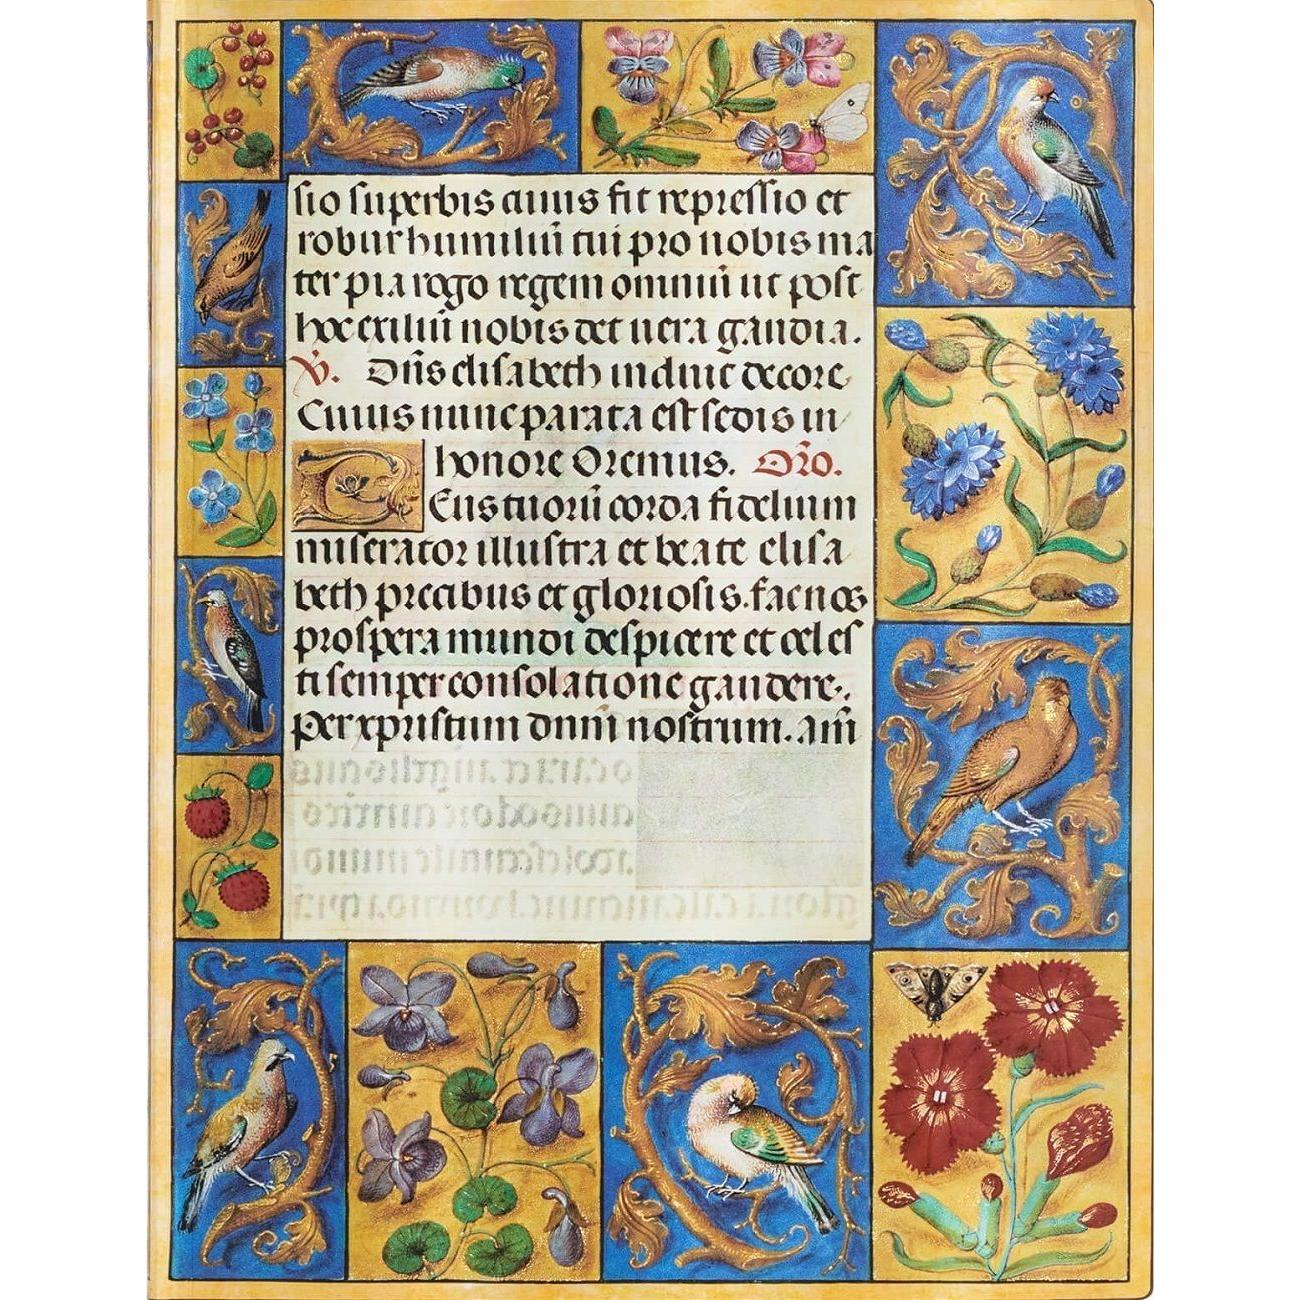 sio superbis cuius fit repressio et
robur humiliũ tui pro nobis ma
ter pia rogo regem omniũ ut post
hoc exiliũ nobis det uera gaudia.
℣. Dñs elisabeth induit decore
Cuius nunc parata est sedis in
honore Oremus. Orõ.
Deus tuorũ corda fidelium
miserator illustra et beate elisa
beth precibus et gloriosis. fac nos
prospera mundi despicere et celes
ti semper consolatione gaudere.
Per xpristum dnm̃ nostrum. am̃